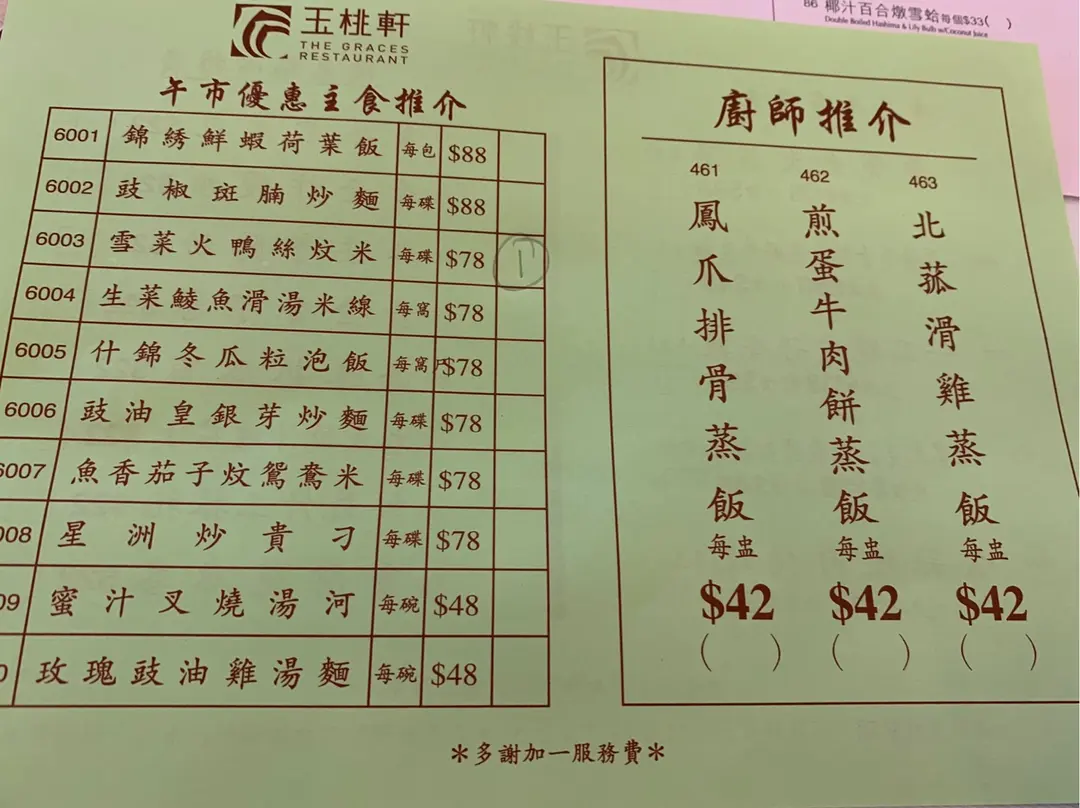 86 椰汁百合燉雪蛤每個$33( )
Double Boiled Hashima & Lily Bulb w/Coconut Juice
玉桃軒
THE GRACES
RESTAURANT
午市優惠主食推介
6001 錦綉鮮蝦荷葉飯 每包 $88
6002 豉椒斑腩炒麵 每碟 $88
6003 雪菜火鴨絲炆米 每碟 $78 1
6004 生菜鯪魚滑湯米線 每窩 $78
6005 什錦冬瓜粒泡飯 每窩 $78
6006 豉油皇銀芽炒麵 每碟 $78
6007 魚香茄子炆鴛鴦米 每碟 $78
008 星洲炒貴刁 每碟 $78
09 蜜汁叉燒湯河 每碗 $48
0 玫瑰豉油雞湯麵 每碗 $48
廚師推介
461 鳳爪排骨蒸飯 每盅 $42 ( )
462 煎蛋牛肉餅蒸飯 每盅 $42 ( )
463 北菰滑雞蒸飯 每盅 $42 ( )
*多謝加一服務費*